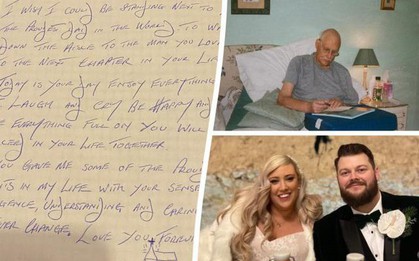 I WISH I COULD BE STANDING NEXT TO
THE PROUDEST DAD IN THE WORLD TO W
DOWN THE AISLE TO THE MAN YOU LOVE
TO THE NEXT CHAPTER IN YOUR LIF
TODAY IS YOUR DAY ENJOY EVERYTHING
LAUGH AND CRY BE HAPPY AND
EVERYTHING FULL ON YOU WILL
IN YOUR LIFE TOGETHER
YOU GAVE ME SOME OF THE PROUD
IN MY LIFE WITH YOUR SENSE
UNDERSTANDING AND CARING
CHANGE, LOVE YOU FOREVER